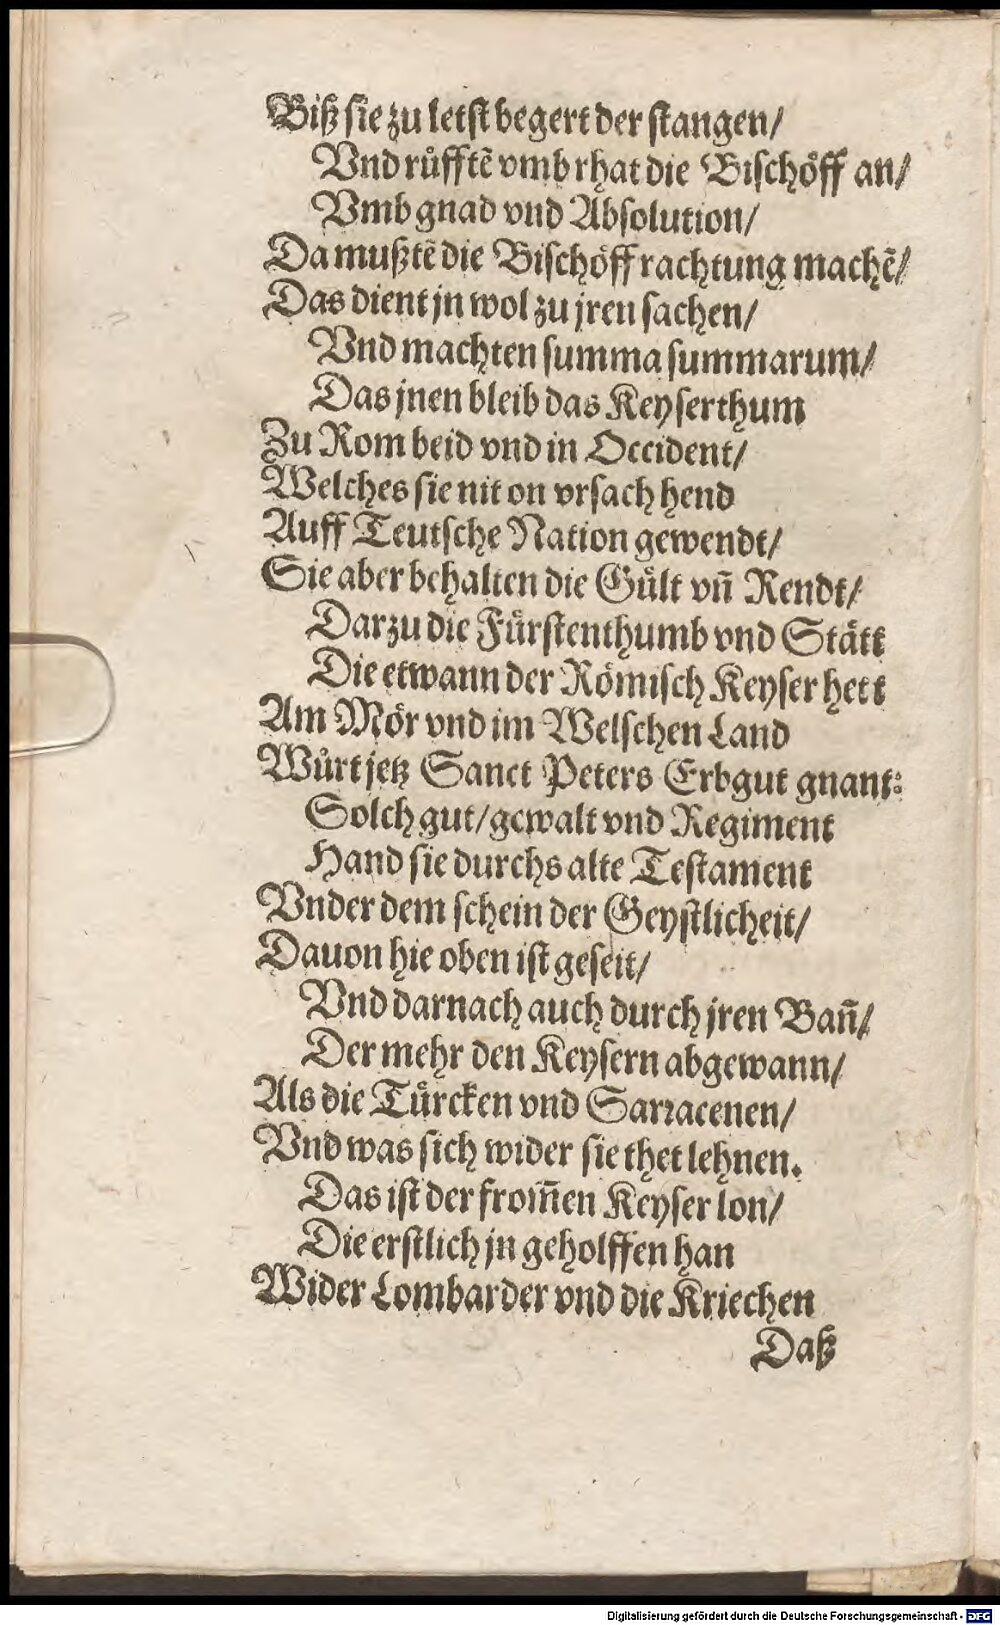 Biß sie zu letst begert der stangen/
Vnd růfftẽ vmb rhat die Bischöff an/
Vmb gnad vnd Absolution/
Da mußtẽ die Bischöff rachtung machẽ/
Das dient jn wol zu jren sachen/
Vnd machten summa summarum/
Das jnen bleib das Keyserthum
Zu Rom beid vnd in Occident/
Welches sie nit on vrsach hend
Auff Teutsche Nation gewendt/
Sie aber behalten die Gült vñ Rendt/
Darzu die Fürstenthumb vnd Stätt
Die etwann der Römisch Keyser hett
Am Mör vnd im Welschen Land
Würt jetz Sanct Peters Erbgut gnant:
Solch gut/gewalt vnd Regiment
Hand sie durchs alte Testament
Vnder dem schein der Geystlicheit/
Dauon hie oben ist geseit/
Vnd darnach auch durch jren Bañ/
Der mehr den Keysern abgewann/
Als die Türcken vnd Sarracenen/
Vnd was sich wider sie thet lehnen.
Das ist der from̃en Keyser lon/
Die erstlich jn geholffen han
Wider Lombarder vnd die Kriechen
Daß
Digitalisierung gefördert durch die Deutsche Forschungsgemeinschaft - DFG